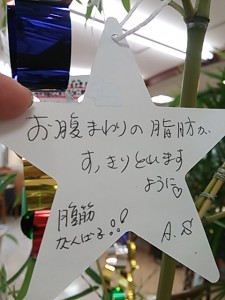 お腹まわりの脂肪が、
すっきりといます
ように♡
腹筋
がんばる!!
A.S